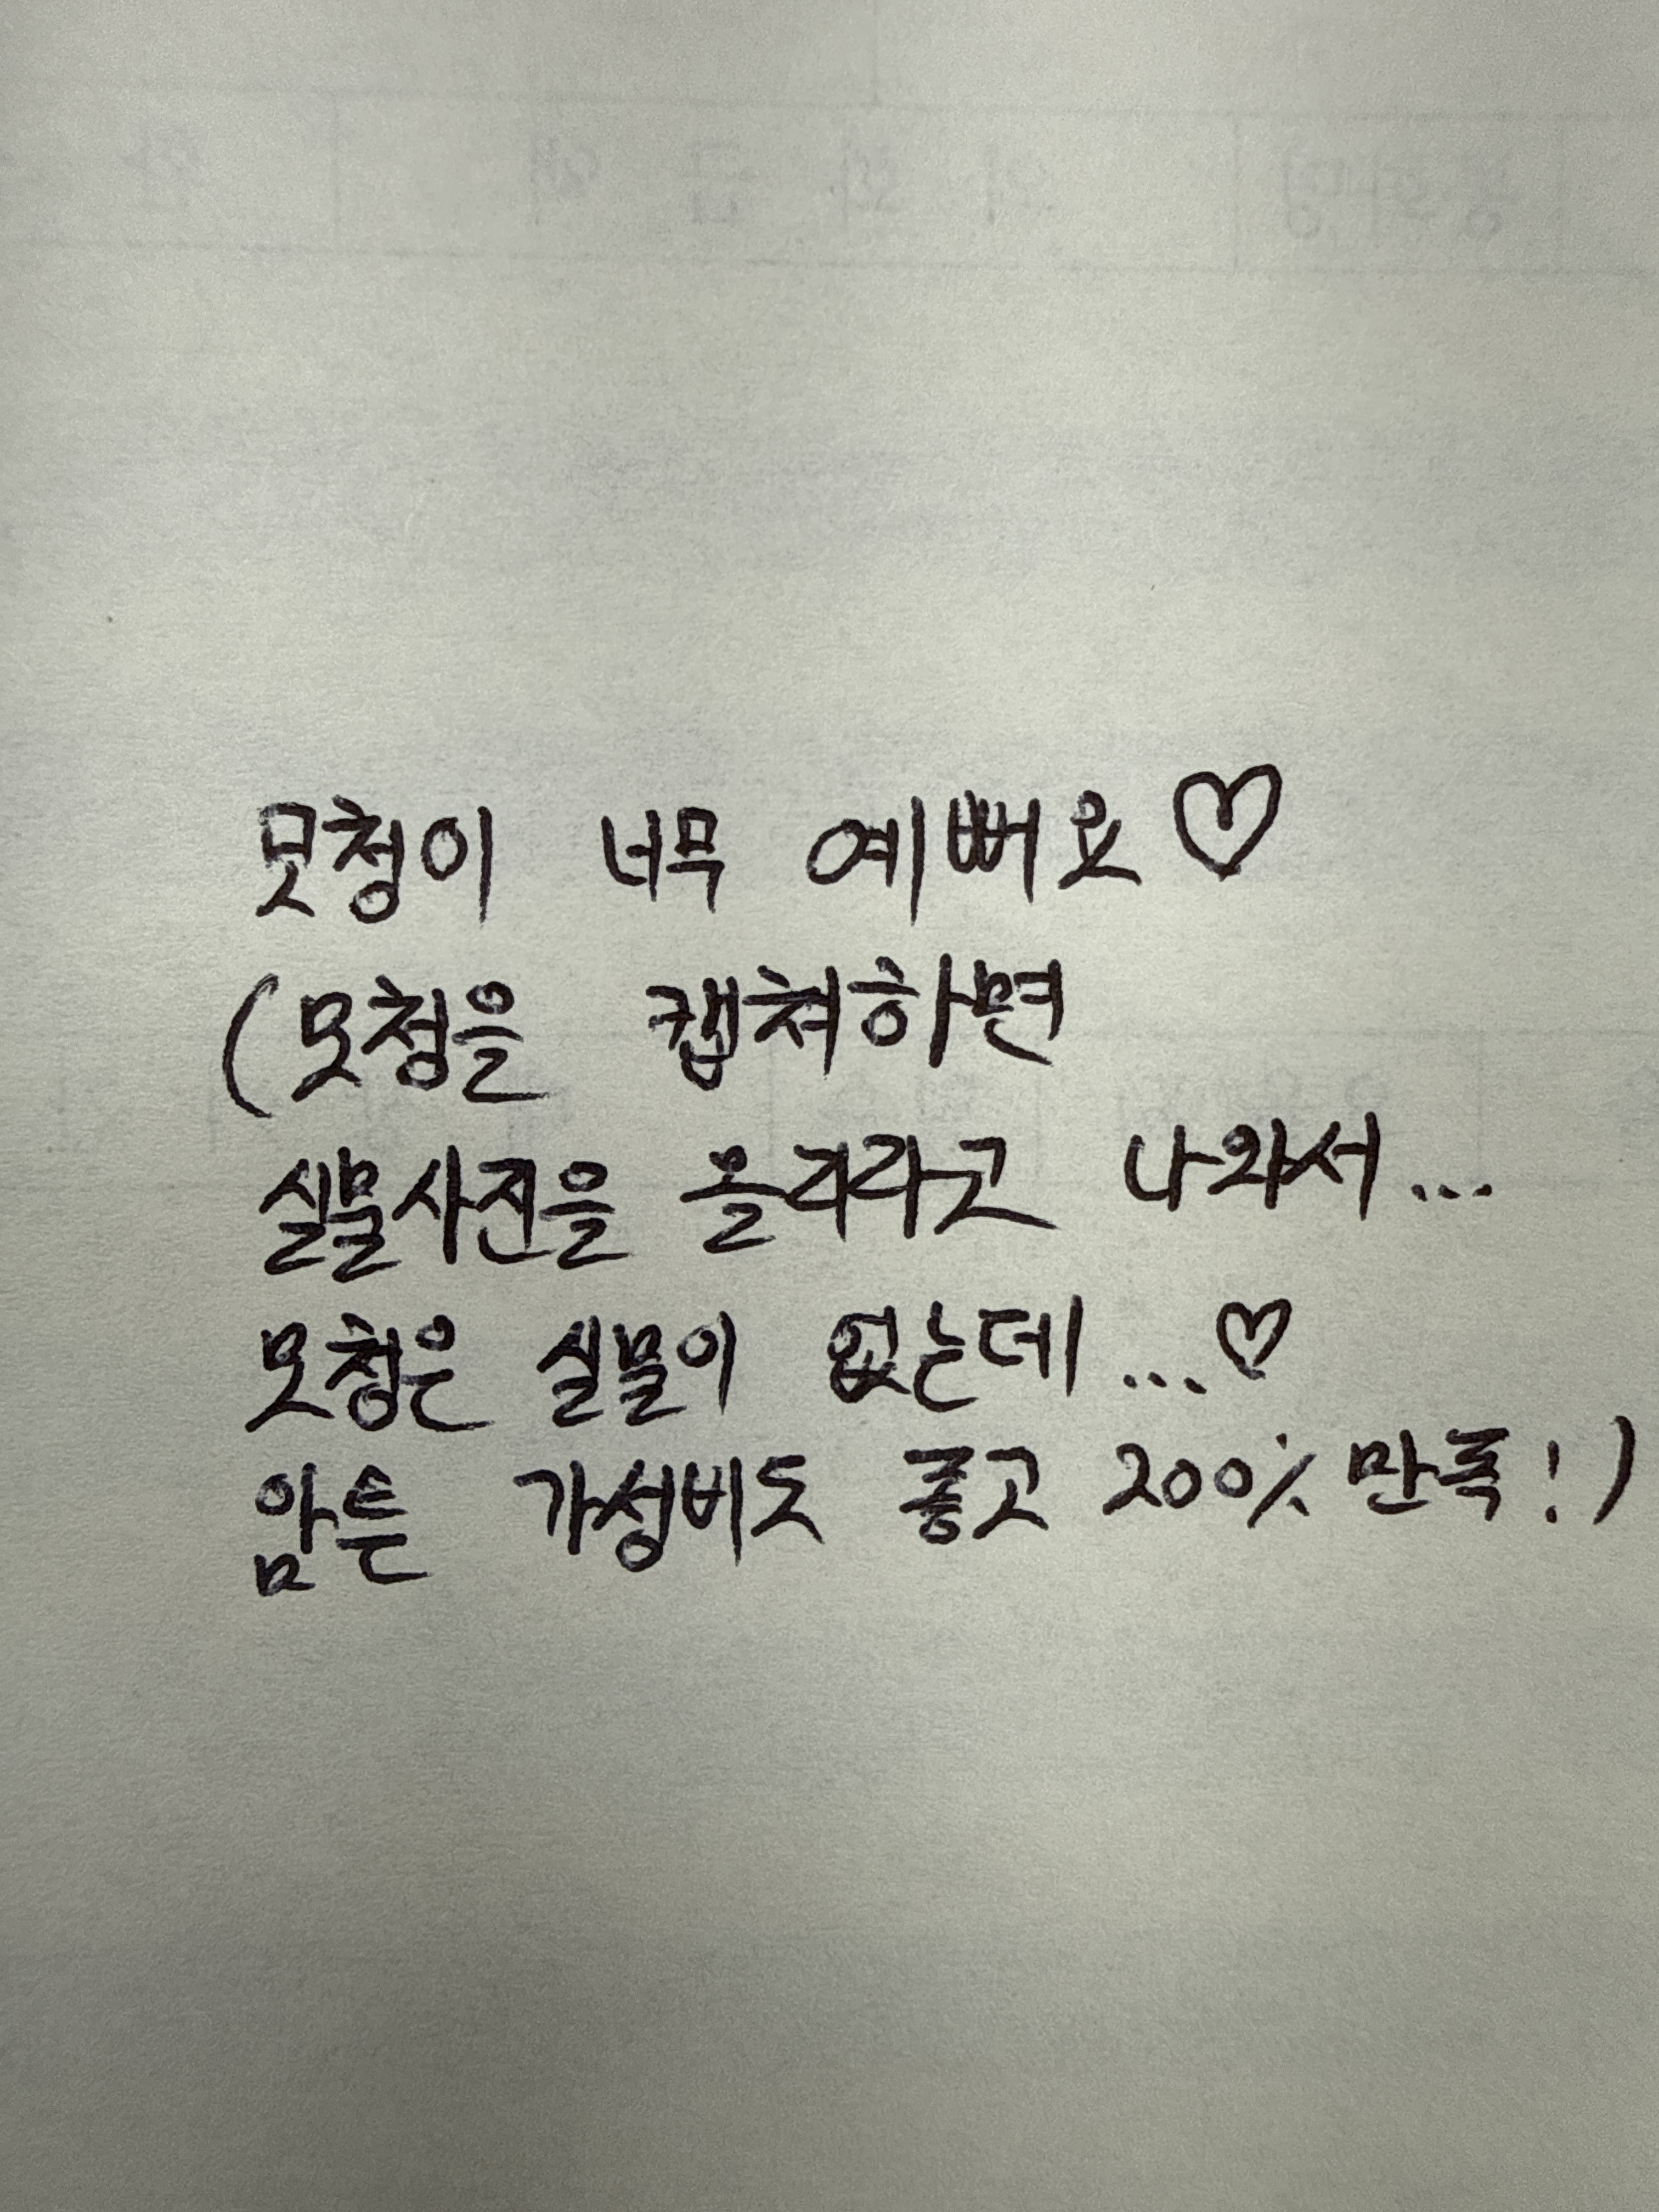 못청이 너무 예뻐요♡
(모청을 캡쳐하면
실물사진을 올려라고 나와서...
모청은 실물이 없는데...♡
암튼 가성비도 좋고 200% 만족!)